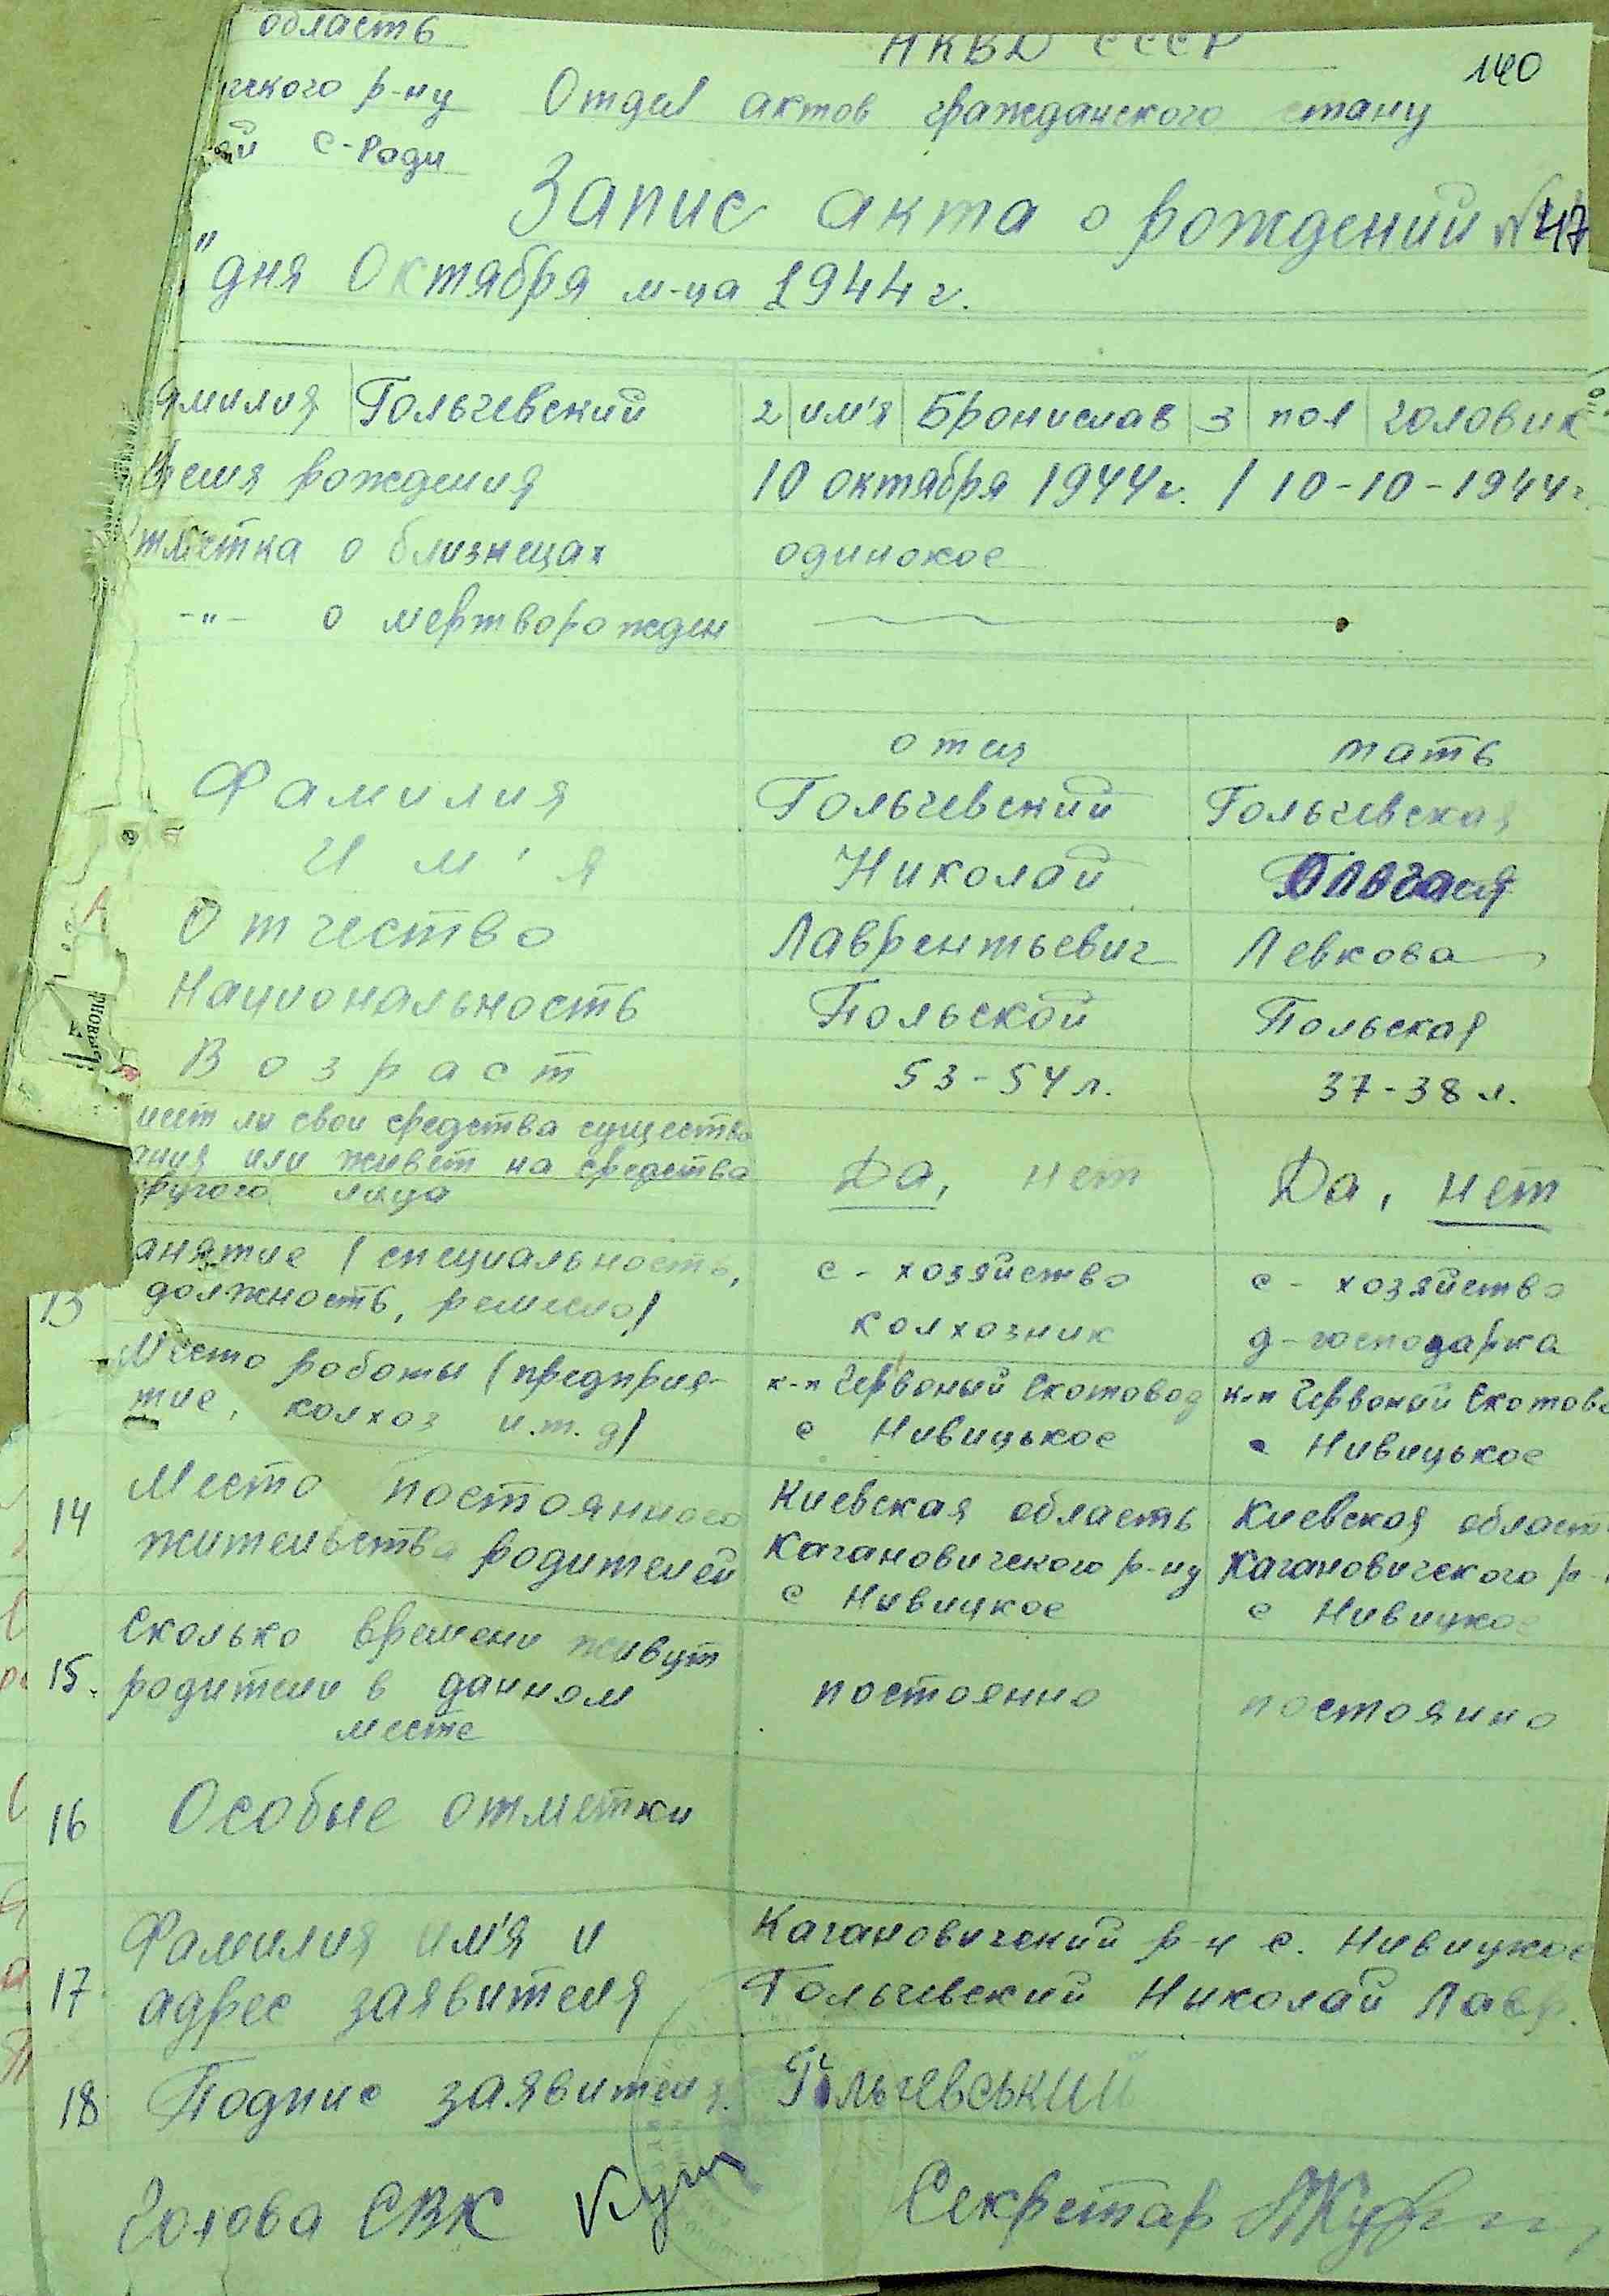 область
НКВД СССР
140
ского р-ну Отдел актов гражданского стану
ой С-Ради
Запис акта о рождений № 47
" дня Октября м-ца 1944 г.
амилия Гольчевский 2 им'я Бронислав 3 пол чоловик
Время рождения 10 октября 1944 г. / 10-10-1944 г
тметка о близнецах одинокое
-"- о мертворожден
отец мать
Фамилия Гольчевский Гольчевская
Им'я Николай
Отчество Лаврентьевич Левкова
Национальность Польской Польская
Возраст 53-54 л. 37-38 л.
меет ли свои средства существо
ания или живет на средства
другого лица Да, нет Да, нет
анятие (специальность, с-хозяйство с-хозяйство
13 должность, ремесло) колхозник д-господарка
Место роботы (предприя- к-п Червоный Скотовод к-п Червоный Скотово
тие, колхоз и.т.д) с Нивицькое с Нивицькое
14 Место постоянного Киевская область Киевская област
жительства родителей Кагановичского р-ну Кагановичского р-
с Нивицкое с Нивицкое
Сколько времени живут
15. родители в данном постоянно постоянно
месте
16 Особые отметки
Фамилия им'я и Кагановичский р-н с. Нивицкое
17 адрес заявителя Гольчевский Николай Лавр.
18 Подпис заявителя. Гольчевський
Голова СВК Секретар